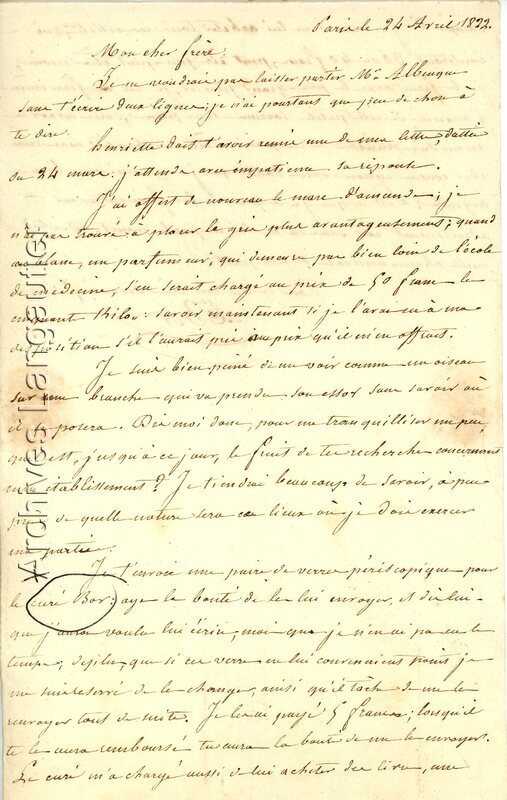 Paris le 24 Avril 1822.
Mon cher frère,
Je ne voudrais pas laisser partir Mr Albenque
sans t'écrire deux lignes; je n'ai pourtant que peu de chose à
te dire.
henriette doit t'avoir remis une de mes lettres, datée
du 24 mars: j'attends avec impatience sa réponse.
J'ai offert de nouveau le marc d'amande; je
n'ai pas trouvé à placer le gris plus avantageusement; quand
au blanc, un parfumeur, qui demeure pas bien loin de l'école
de médecine, s'en serait chargé au prix de 50 francs le
Kilos: savoir maintenant si je l'avais eu à ma
disposition s'il l'aurait pris au prix qu'il m'en offrait.
Je suis bien peiné de me voir comme un oiseau
sur une branche qui va prendre son essor sans savoir où
il se posera. Dis moi donc, pour me tranquilliser un peu,
quel est, jusqu'à ce jour, le fruit de tes recherches concernant
mon établissement? Je tiendrai beaucoup de savoir, à peu
près de quelle nature sera ce lieux où je dois exercer
ma partie.
Je t'envoie une paire de verres périscopiques pour
le curé Bor: aye la bonté de les lui envoyer, et dis lui
que j'aurois voulu lui écrire, mais que je n'en ai pas eu le
temps, de plus, que si ces verres ne lui convenaient point je
me suis réservé de les changer, ainsi qu'il tâche de me les
renvoyer tout de suite. Je les ai payé 5 francs; lorsqu'il
te les aura remboursé tu auras la bonté de me les envoyer.
Le curé m'a chargé aussi de lui acheter des livres, une
*Archives Langaufier